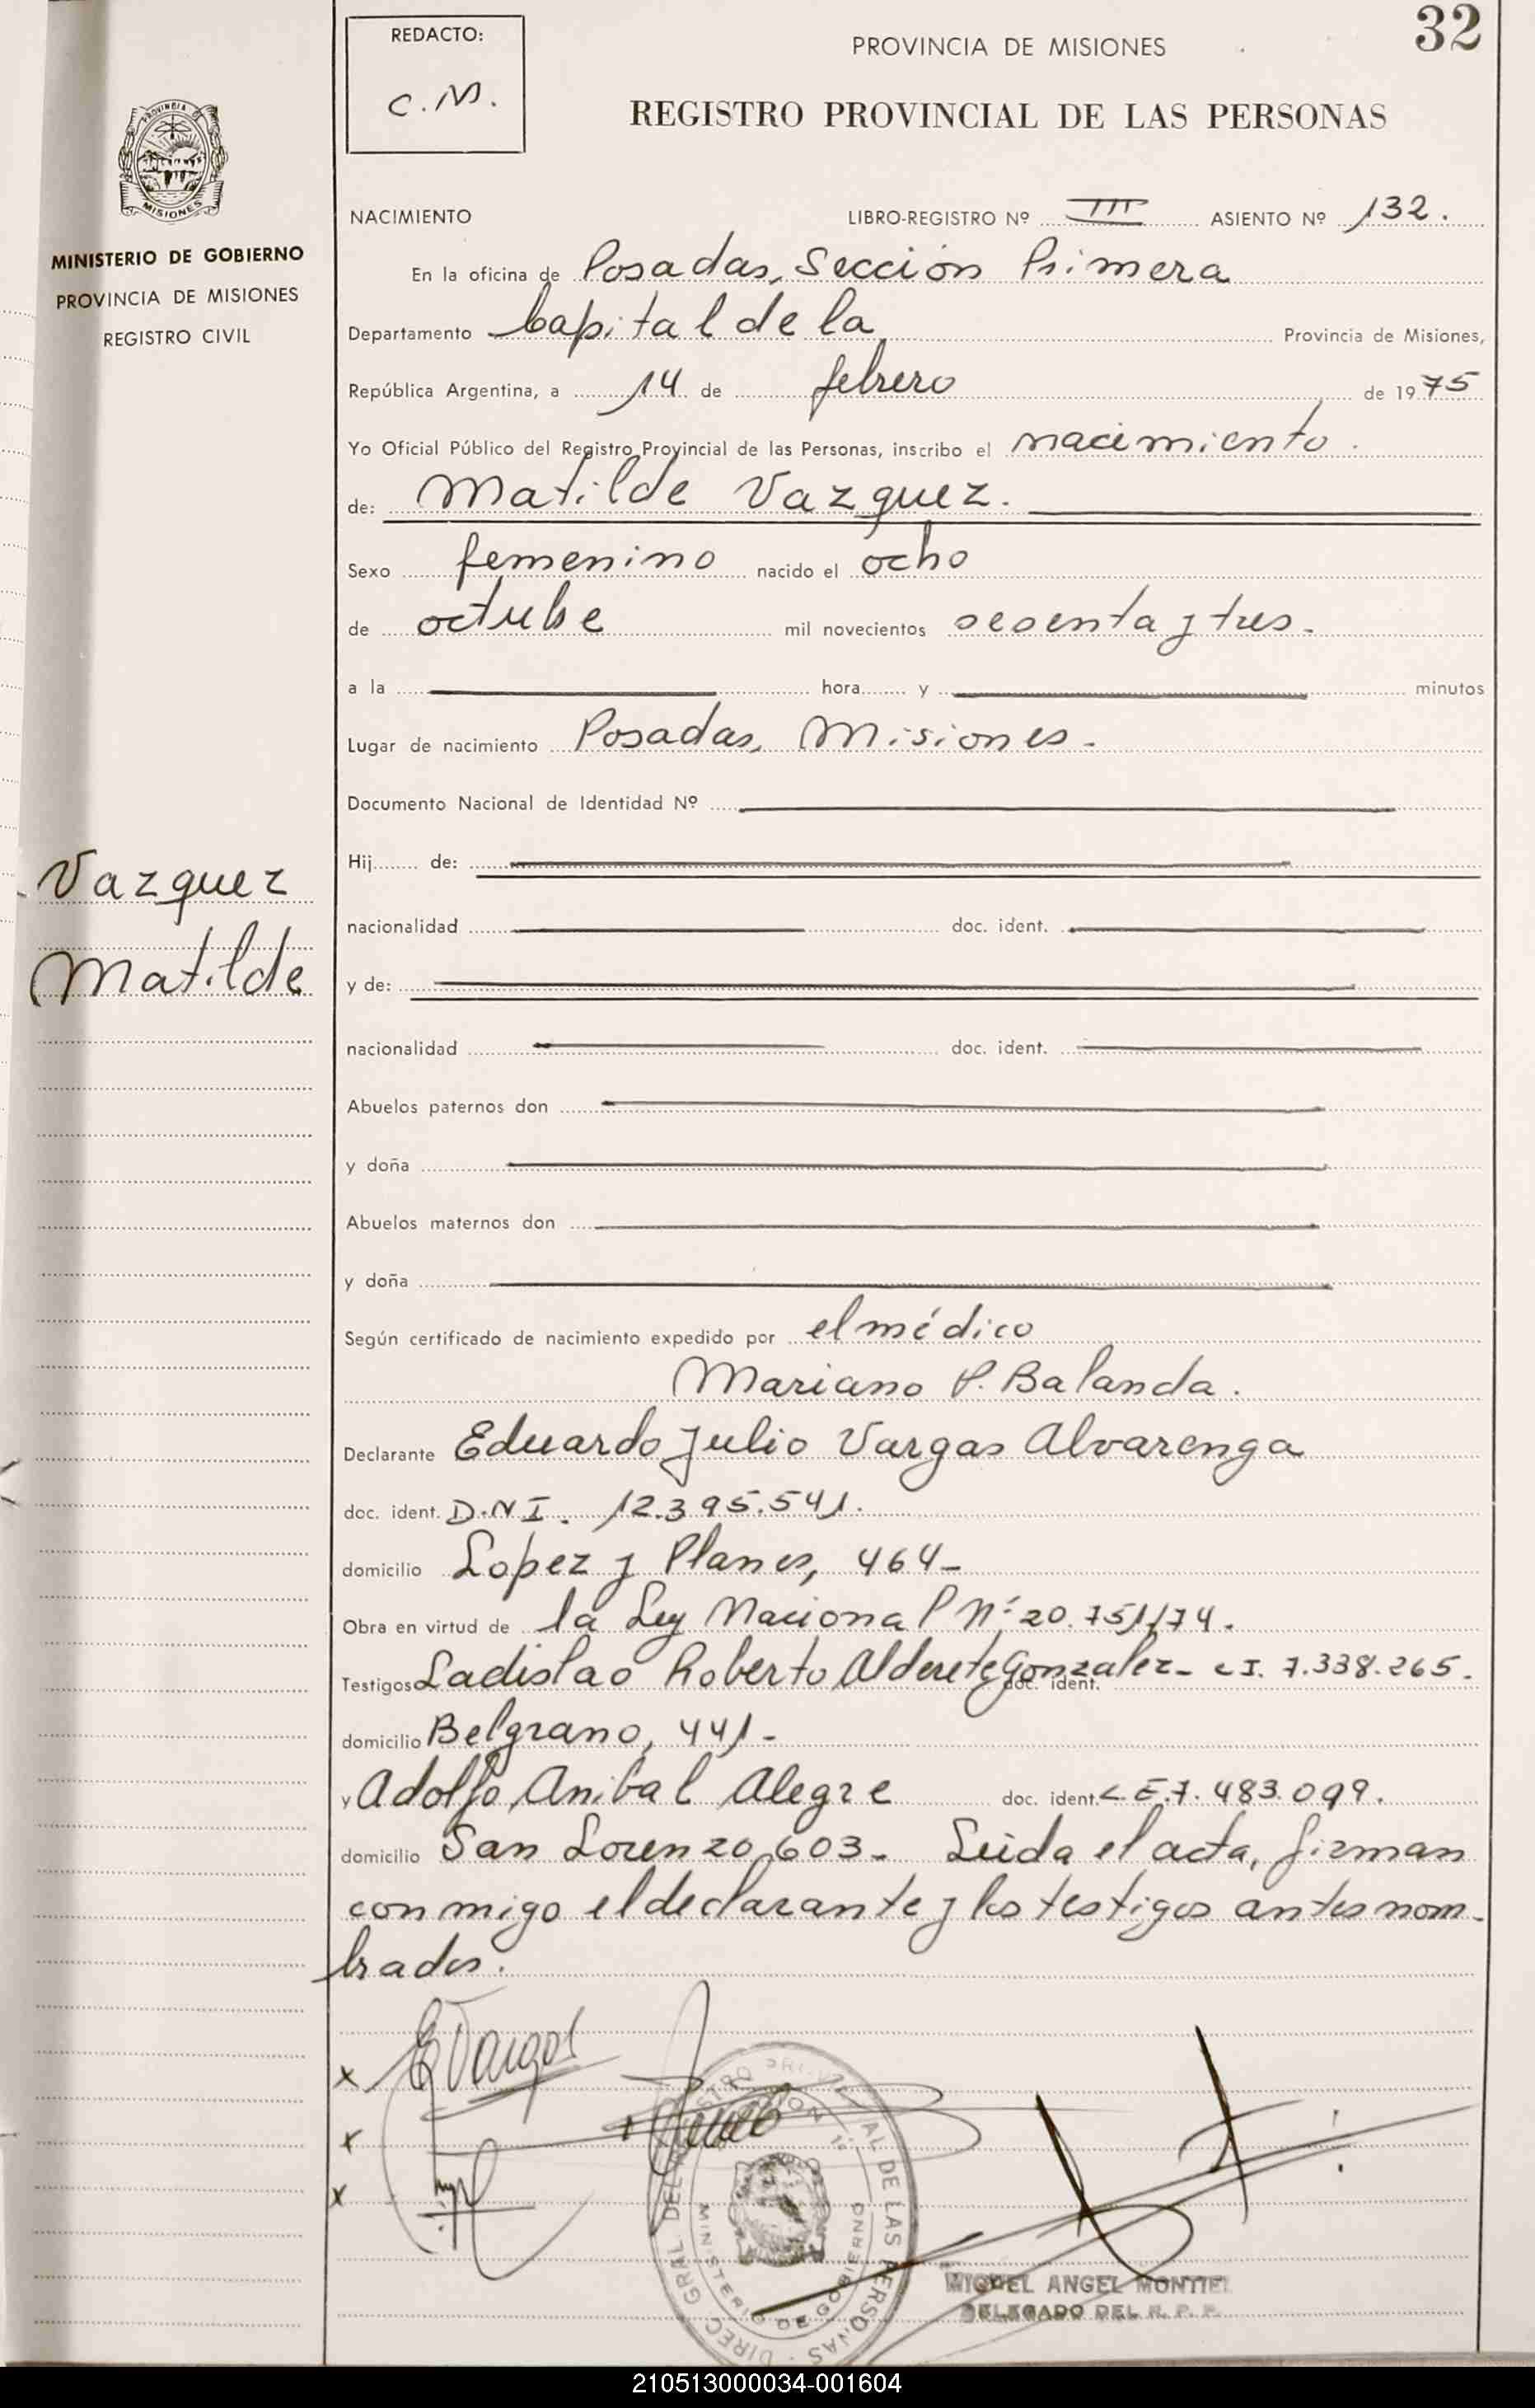 32
REDACTO:
C.M.
PROVINCIA DE MISIONES
REGISTRO PROVINCIAL DE LAS PERSONAS
PROVINCIA
MISIONES
MINISTERIO DE GOBIERNO
PROVINCIA DE MISIONES
REGISTRO CIVIL
Vazquez
Matilde
NACIMIENTO LIBRO-REGISTRO Nº III ASIENTO Nº 132.
En la oficina de Posadas, Sección Primera
Departamento Capital de la Provincia de Misiones,
República Argentina, a 14 de febrero de 1975
Yo Oficial Público del Registro Provincial de las Personas, inscribo el nacimiento.
de: Matilde Vazquez.
Sexo femenino nacido el ocho
de octubre mil novecientos sesenta y tres.
a la hora y minutos
Lugar de nacimiento Posadas, Misiones.
Documento Nacional de Identidad Nº
Hij de:
nacionalidad doc. ident.
y de:
nacionalidad doc. ident.
Abuelos paternos don
y doña
Abuelos maternos don
y doña
Según certificado de nacimiento expedido por el médico
Mariano P. Balanda.
Declarante Eduardo Julio Vargas Alvarenga
doc. ident. D.N.I. 12.395.541.
domicilio Lopez y Planes, 464-
Obra en virtud de la Ley Nacional Nº 20.751/74.
Testigos Ladislao Roberto Alderete Gonzalez- doc. ident. C.I. 7.338.265.
domicilio Belgrano, 441-
y Adolfo Anibal Alegre doc. ident. L.E. 7.483.099.
domicilio San Lorenzo, 603- Leida el acta, firman
conmigo el declarante y los testigos antes nom-
brados.
x EVargas
x
x
DIREC. GRAL. DEL REGISTRO PROVINCIAL DE LAS PERSONAS
MINISTERIO DE GOBIERNO
MIGUEL ANGEL MONTIEL
DELEGADO DEL R. P. P.
210513000034-001604